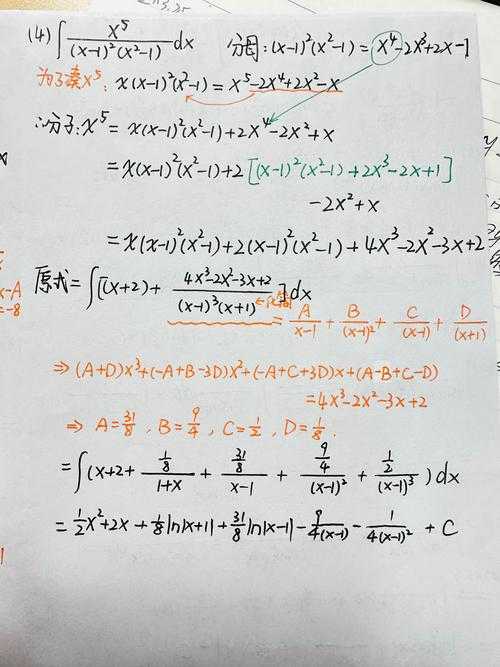 (4) ∫ x⁵/((x-1)²(x²-1)) dx 分母:(x-1)²(x²-1) = x⁴-2x³+2x-1
为了凑x⁵: x(x-1)²(x²-1) = x⁵-2x⁴+2x²-x
∴分子:x⁵ = x(x-1)²(x²-1)+2x⁴-2x²+x
= x(x-1)²(x²-1)+2[(x-1)²(x²-1)+2x³-2x+1]
-2x²+x
= x(x-1)²(x²-1)+2(x-1)²(x²-1)+4x³-2x²-3x+2
原式 = ∫[(x+2) + (4x³-2x²-3x+2)/((x-1)³(x+1))]dx
= A/(x-1) + B/(x-1)² + C/(x-1) + D/(x+1)
⇒ (A+D)x³+(-A+B-3D)x²+(-A+C+3D)x+(A-B+C-D)
= 4x³-2x²-3x+2
⇒ A=31/8, B=9/4, C=1/2, D=1/8.
= ∫(x+2+ (1/8)/(1+x) + (31/8)/(x-1) + (9/4)/(x-1)² + (1/2)/(x-1)³)dx
= 1/2x²+2x+1/8ln|x+1|+31/8ln|x-1|-9/(4(x-1))-1/(4(x-1)²) + C
x-A
=-8